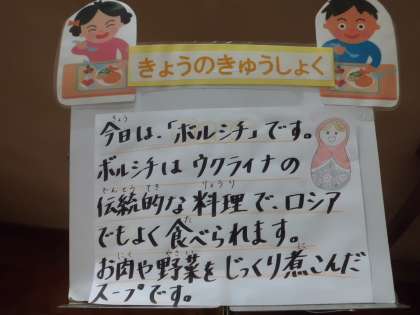 きょうのきゅうしょく
今日は、「ボルシチ」です。
ボルシチはウクライナの
伝統的な料理で、ロシア
でもよく食べられます。
お肉や野菜をじっくり煮こんだ
スープです。